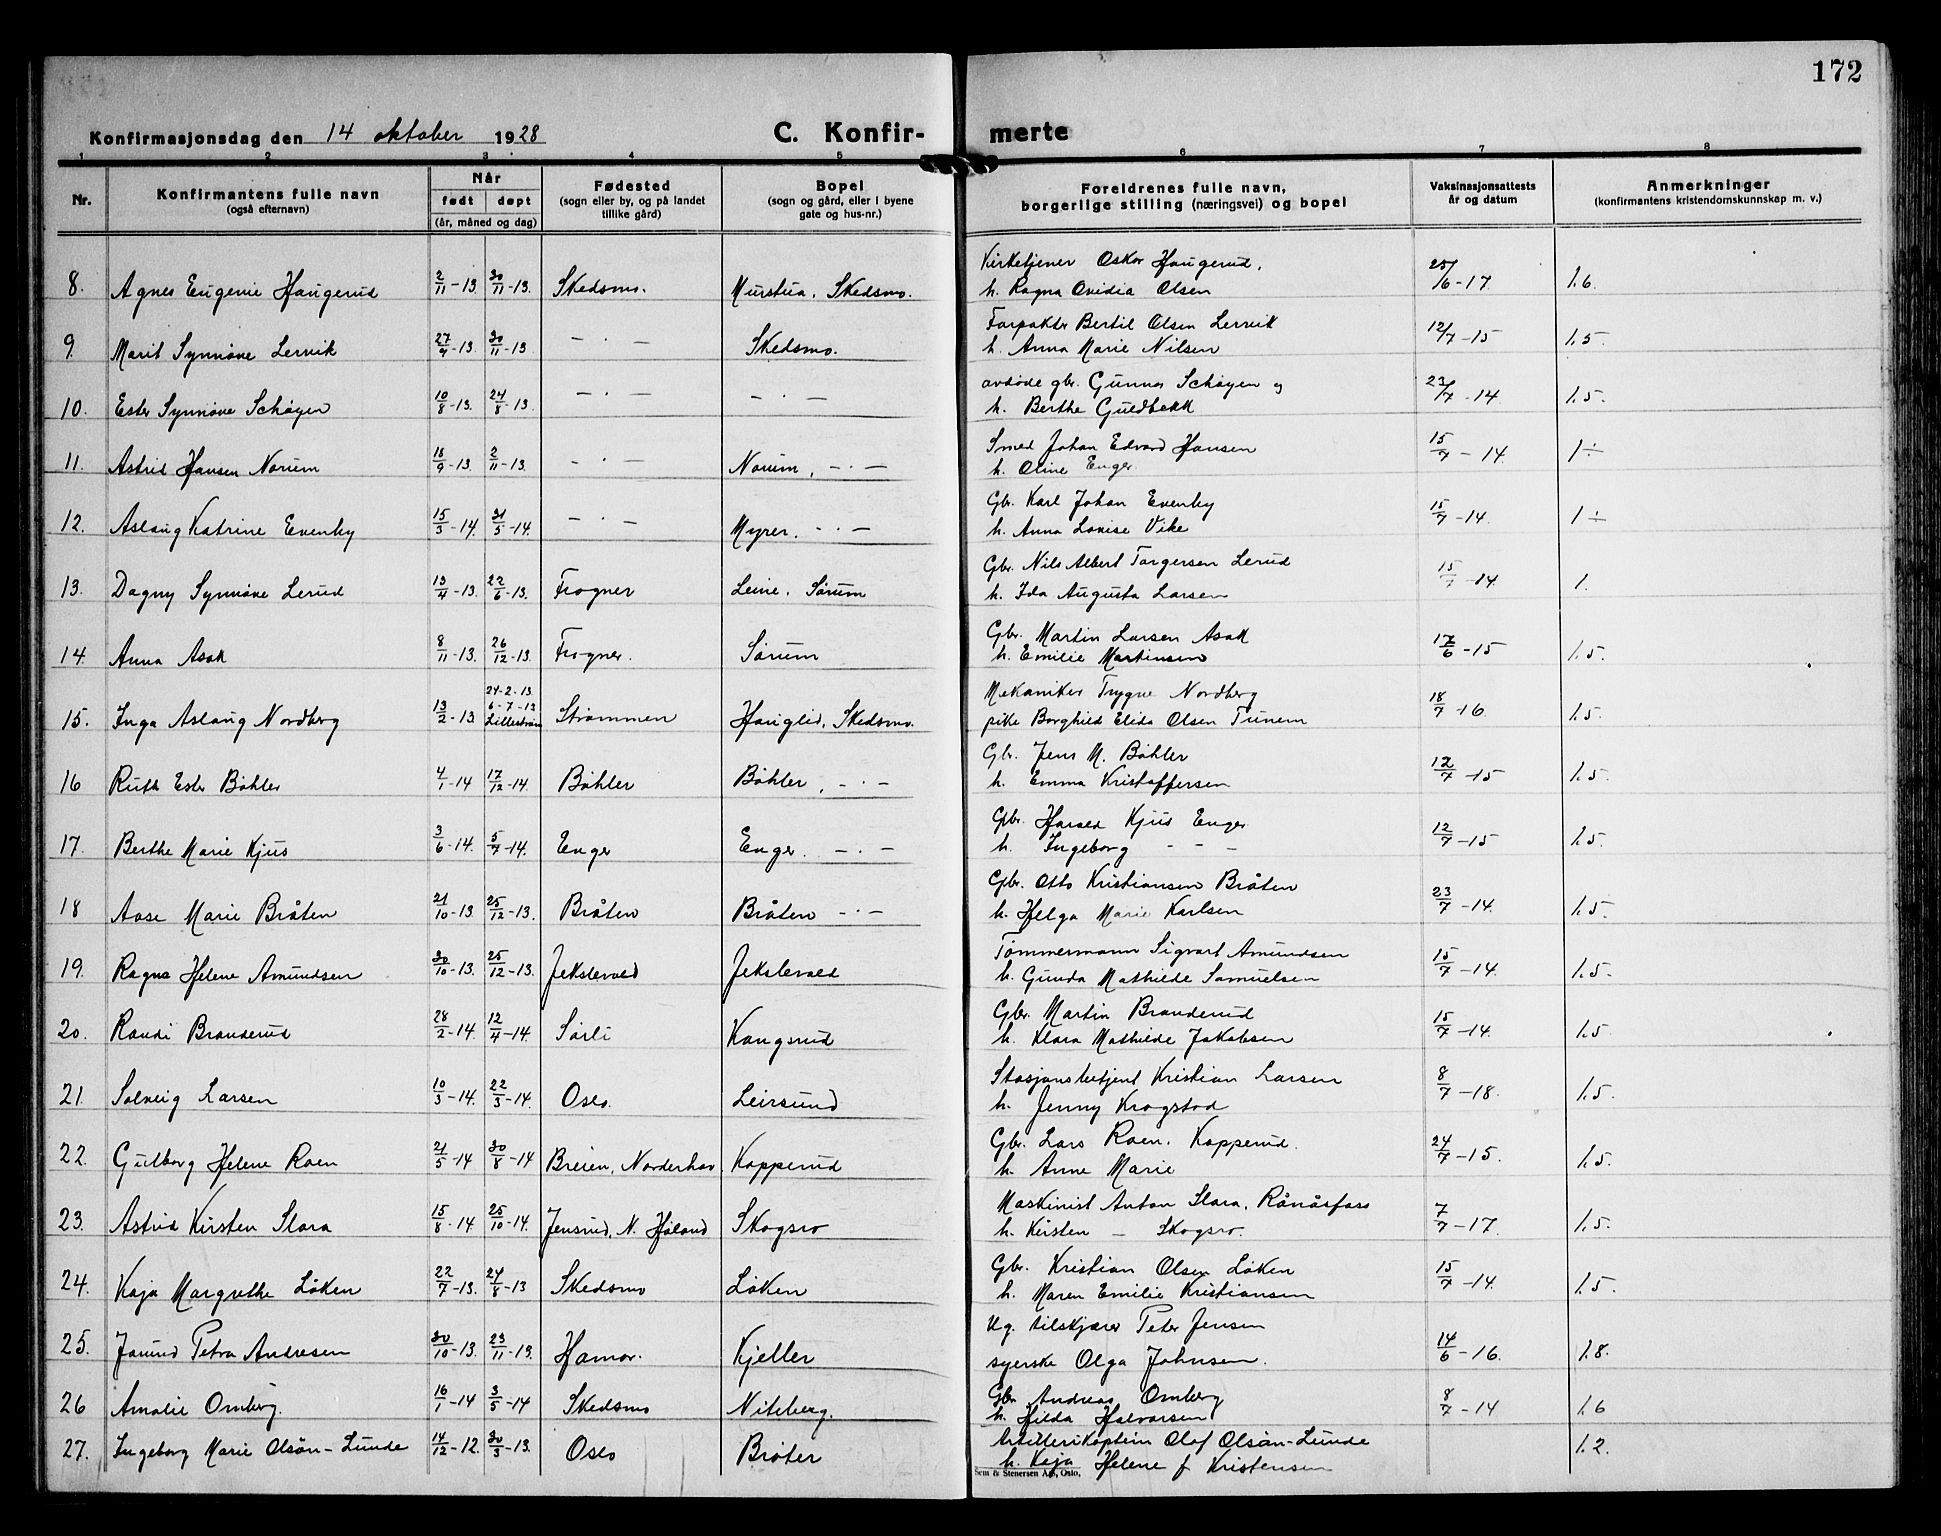 172
Konfirmasjonsdag den 14 oktober 1928 C. Konfir- merte
1 2 3 4 5 6 7 8
Nr. Konfirmantens fulle navn (også efternavn) Når født døpt (år, måned og dag) Fødested (sogn eller by, og på landet tillike gård) Bopel (sogn og gård, eller i byene gate og hus-nr.) Foreldrenes fulle navn, borgerlige stilling (næringsvei) og bopel Vaksinasjonsattests år og datum Anmerkninger (konfirmantens kristendomskunnskap m. v.)
Kirketjener Oskar Haugerud,
8. Agnes Eugenie Haugerud 2/11-13 30/11-13. Skedsmo. Murstua, Skedsmo. h. Ragna Ovidia Olsen 25/6-17 1.6.
Forpakter Bertil Olsen Lervik
9. Marit Synnöve Lervik 27/9-13. 30/11-13 — · — Skedsmo. h. Anna Marie Nilsen 12/7-15 1.5.
avdöde gbr. Gunnar Schöyen og
10. Ester Synnöve Schöyen 10/8-13. 24/8-13. — · — — · — h. Berthe Guldbekk 23/7-14 1.5.
Smed Johan Edvard Hansen
11. Astrid Hansen Norum 18/9-13. 2/11-13. — · — Norum, — · — h. Oline Enger 15/7-14. 1÷
Gbr. Karl Johan Evenby
12. Aslaug Katrine Evenby 15/3-14. 31/5-14. — · — Myrer. — · — h. Anna Lovise Vike 15/7-14. 1÷
Gbr. Nils Albert Torgersen Lerud
13. Dagny Synnöve Lerud 13/4-13. 22/6-13. Frogner Leine, Sörum h. Ida Augusta Larsen 15/7-14. 1.
Gbr. Martin Larsen Asak
14. Anna Asak 8/11-13. 26/12-13. Frogner. Sörum h. Emilie Martinsen 17/6-15 1.5.
24-2-13. 6-7-13 Mekaniker Trygve Nordberg
15. Inga Aslaug Nordberg 13/2-13 Lilleström Strömmen Hauglid, Skedsmo. pike Borghild Elida Olsen Tunem 18/7-16 1.5.
Gbr. Jens M. Böhler
16 Ruth Ester Böhler 4/1-14 17/12-14. Böhler Böhler, — · — h. Emma Kristoffersen 12/7-15 1.5.
Gbr. Harald Kjus Enger
17. Berthe Marie Kjus 3/6-14. 5/7-14. Enger Enger. — · — h. Ingeborg — — — 12/7-15 1.5.
Gbr. Otto Kristiansen Bråten
18 Aase Marie Bråten 21/10-13. 25/12-13. Bråten Bråten — · — h. Helga Marie Karlsen 23/7-14. 1.5.
Tömmermann Sigvart Amundsen
19. Ragna Helene Amundsen 30/10-13. 25/12-13. Jekslevold Jekslevold h. Gunda Mathilde Samuelsen 15/7-14. 1.5.
Gbr. Martin Branderud
20. Randi Branderud 28/2-14. 12/4-14. Sörli Kongsrud h. Klara Mathilde Jakobsen 15/7-14. 1.5.
Stasjonsbetjent Kristian Larsen
21. Solveig Larsen 10/3-14. 22/3-14. Oslo. Leirsund h. Jenny Krogstad 8/7-18. 1.5.
Gbr. Lars Roen. Kopperud.
22. Gulborg Helene Roen 21/5-14 30/8-14 Breien, Norderhov Kopperud h. Anne Marie 24/7-15. 1.5.
Maskinist Anton Slora, Rånåsfoss
23. Astrid Kirsten Slora 15/8-14 25/10-14. Jensrud, N. Höland Skogsro h. Kirsten — Skogsro. 7/7-17. 1.5.
Gbr. Kristian Olsen Löken
24. Kaja Margrethe Löken 22/7-13. 24/8-13 Skedsmo Löken h. Maren Emilie Kristiansen 15/7-14. 1.5.
Ug. tilskjærer Peter Jensen
25. Jorund Petra Andresen 30/10-13. 23/11-13. Hamar. Kjeller syerske Olga Johnsen. 14/6-16. 1.8.
Gbr Andreas Ornberg
26 Amalie Ornberg. 16/1-14 3/5-14 Skedsmo Niteberg. h. Hilda Halvorsen 8/7-14 1.6
Artillerikaptein Olaf Olsön-Lunde
27. Ingeborg Marie Olsön-Lunde 14/12-12. 30/3-13. Oslo Bröter h. Kaja Helene f Kristensen 1.2.
Sem & Stenersen A/S, Oslo.